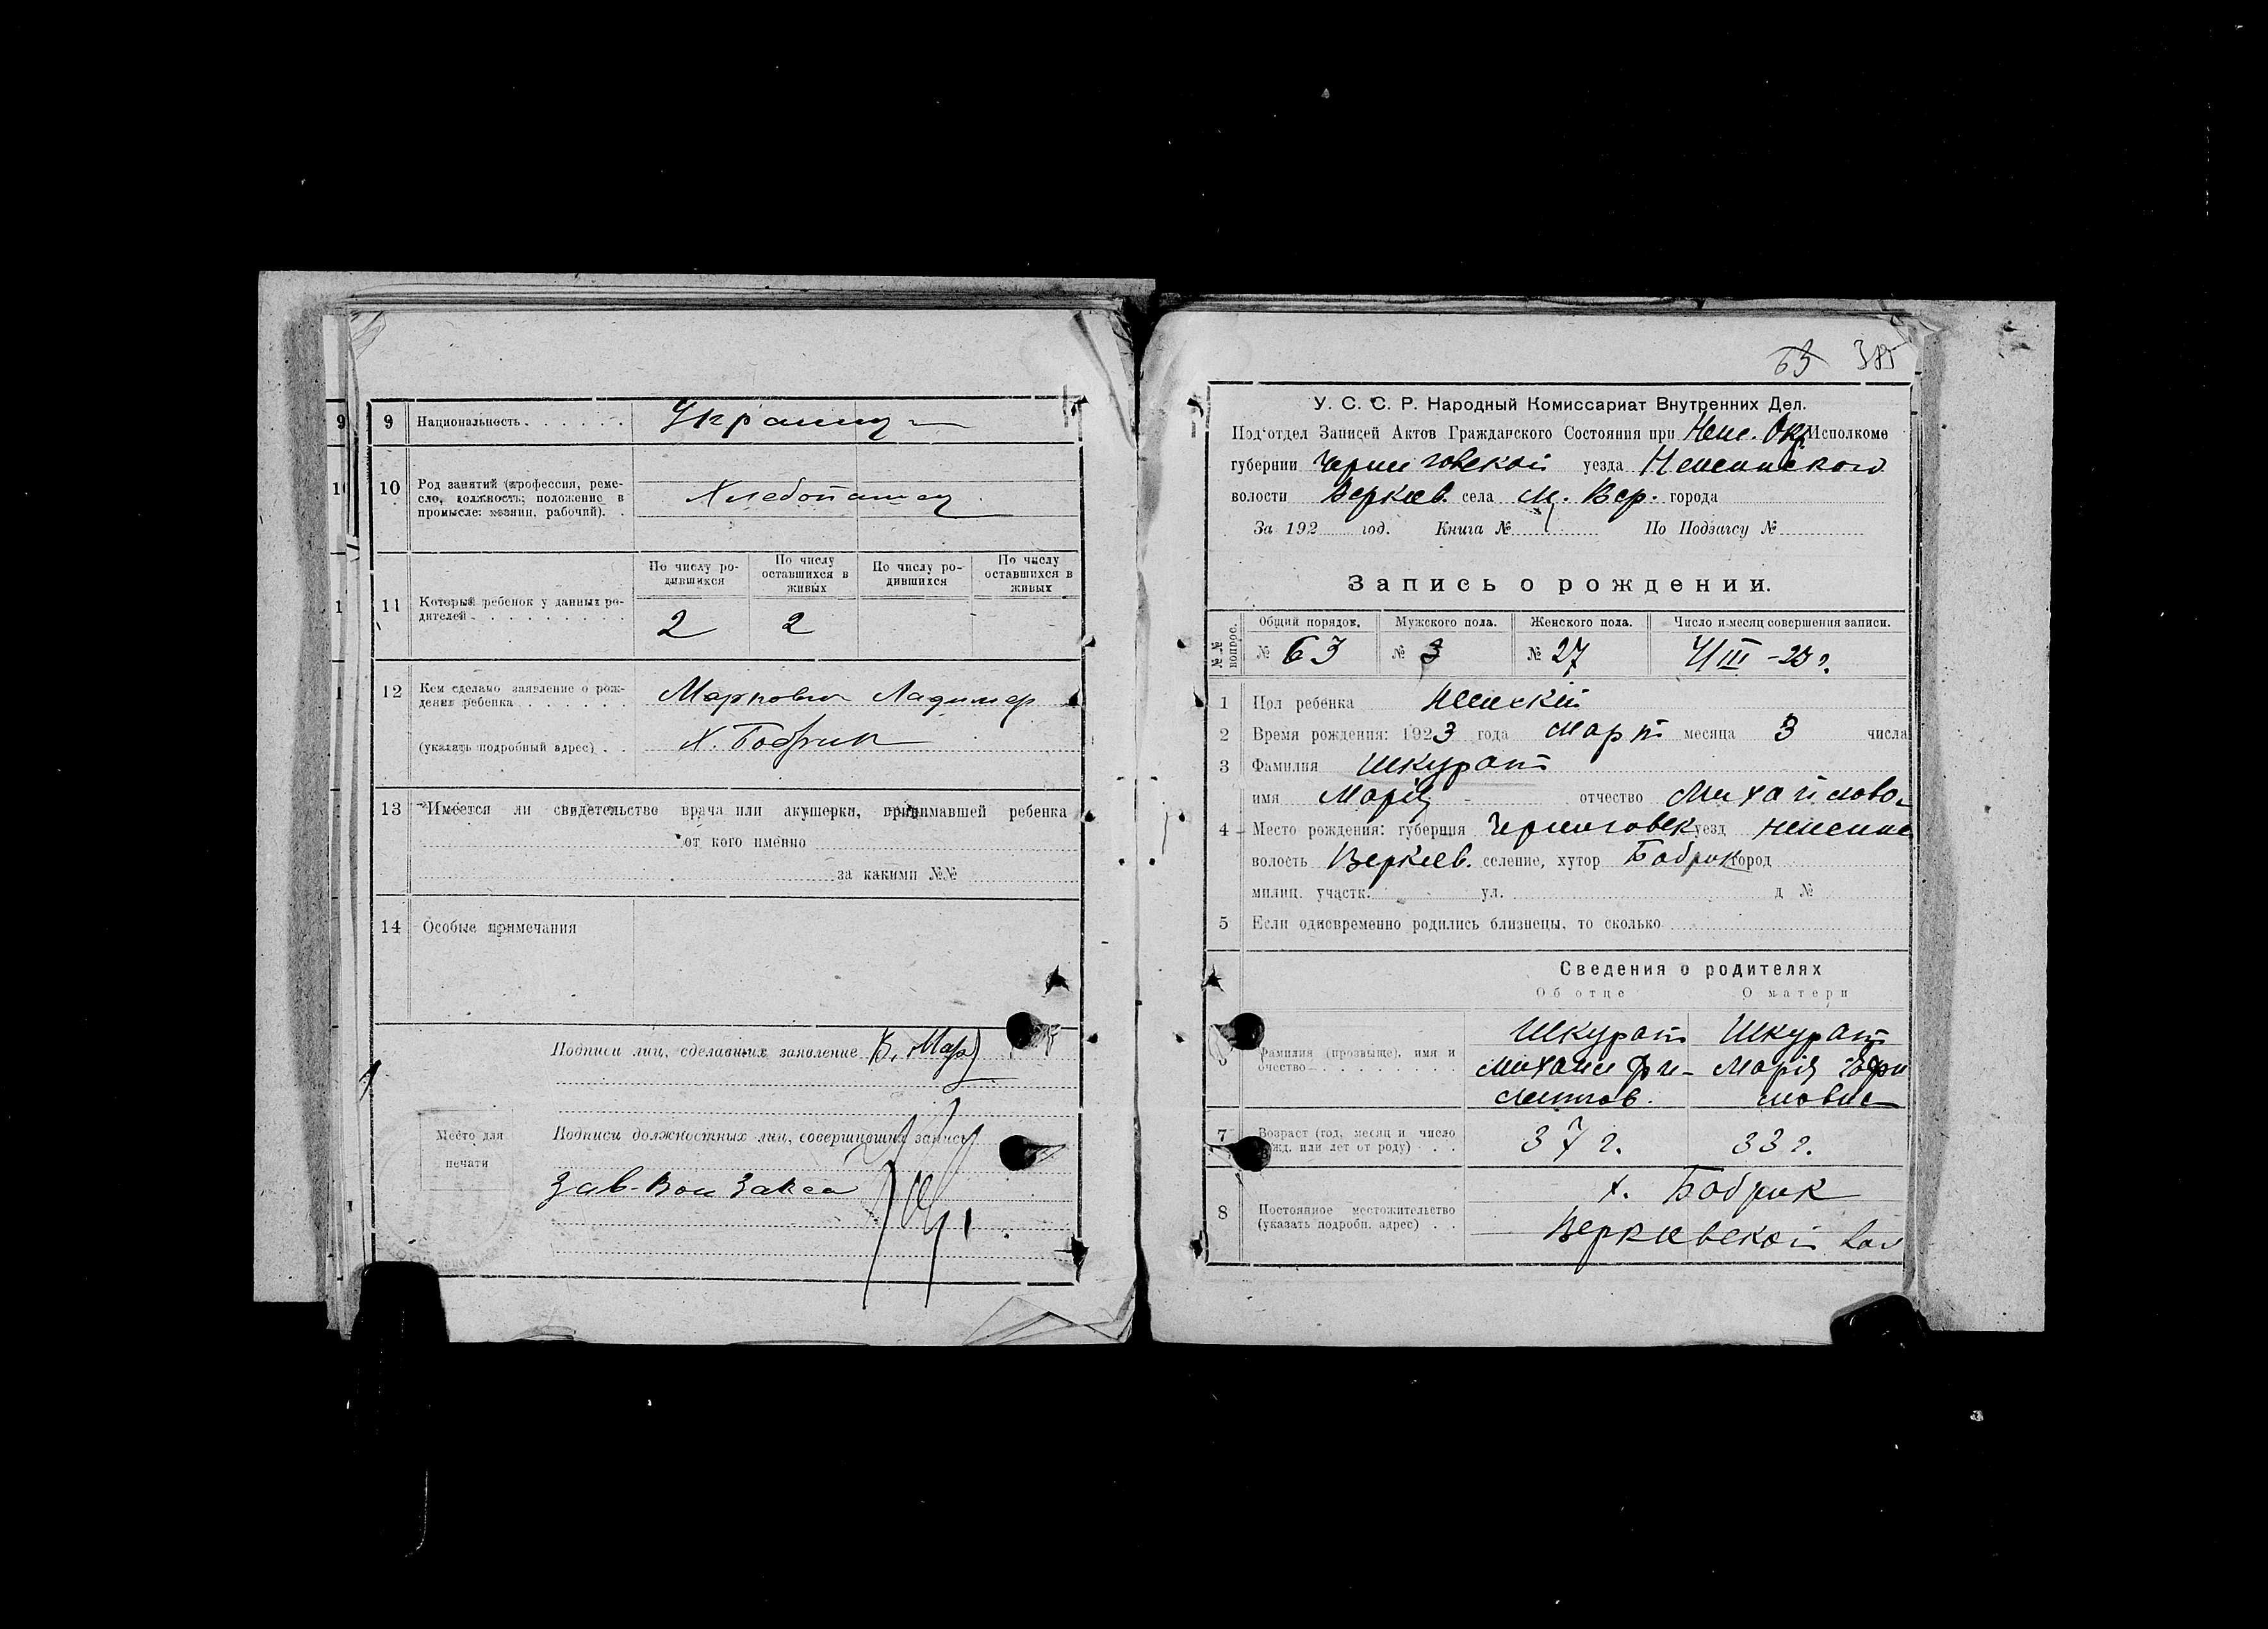 9 Национальность Украинцы
10 Род занятий (профессия, реме-
сло, должность; положение в
промысле: хозяин, рабочий).
Хлебопашец
По числу ро-
дившихся
По числу
оставшихся в
живых
По числу ро-
дившихся
По числу
оставшихся в
живых
11 Который ребенок у данных ро-
дителей
2 2
12 Кем сделано заявление о рож-
дении ребенка
Маркович Ладимер
(указать подробный адрес)
Х. Бобрик
13 Имеется ли свидетельство врача или акушерки, принимавшей ребенка
от кого именно
за какими №№
14 Особые примечания
Подписи лиц, сделавших заявление В. Мар
Место для
печати
Подписи должностных лиц, совершивших запись
Зав. Вол Загса
63 385
У. С. С. Р. Народный Комиссариат Внутренних Дел.
Под'отдел Записей Актов Гражданского Состояния при Неж. Окр Исполкоме
губернии Черниговской уезда Неженского
волости Веркиев. села м. Вер. города
За 192 год. Книга № По Подзагсу №
Запись о рождении.
№ № вопрос.
Общий порядок. Мужского пола. Женского пола. Число и месяц совершения записи.
№ 63 № 3 № 27 4/III-23 г.
1 Пол ребенка Женский
2 Время рождения: 1923 года Март месяца 3 числа
3 Фамилия Шкурат
имя Марія отчество Михайлово-
4 Место рождения: губерния Черниговск уезд Неженс
волость Веркиев. селение, хутор Бобрик город
милиц. участк. ул. д №
5 Если одновременно родились близнецы, то сколько
Сведения о родителях
Об отце О матери
Фамилия (прозвыще), имя и
очество
Шкурат Шкурат
Михаил Фи- Марія Ефи
липов. мовна
7 Возраст (год, месяц и число
рожд. или лет от роду)
37 г. 33 г.
8 Постоянное местожительство
(указать подробн. адрес)
х. Бобрик
Веркиевской вол